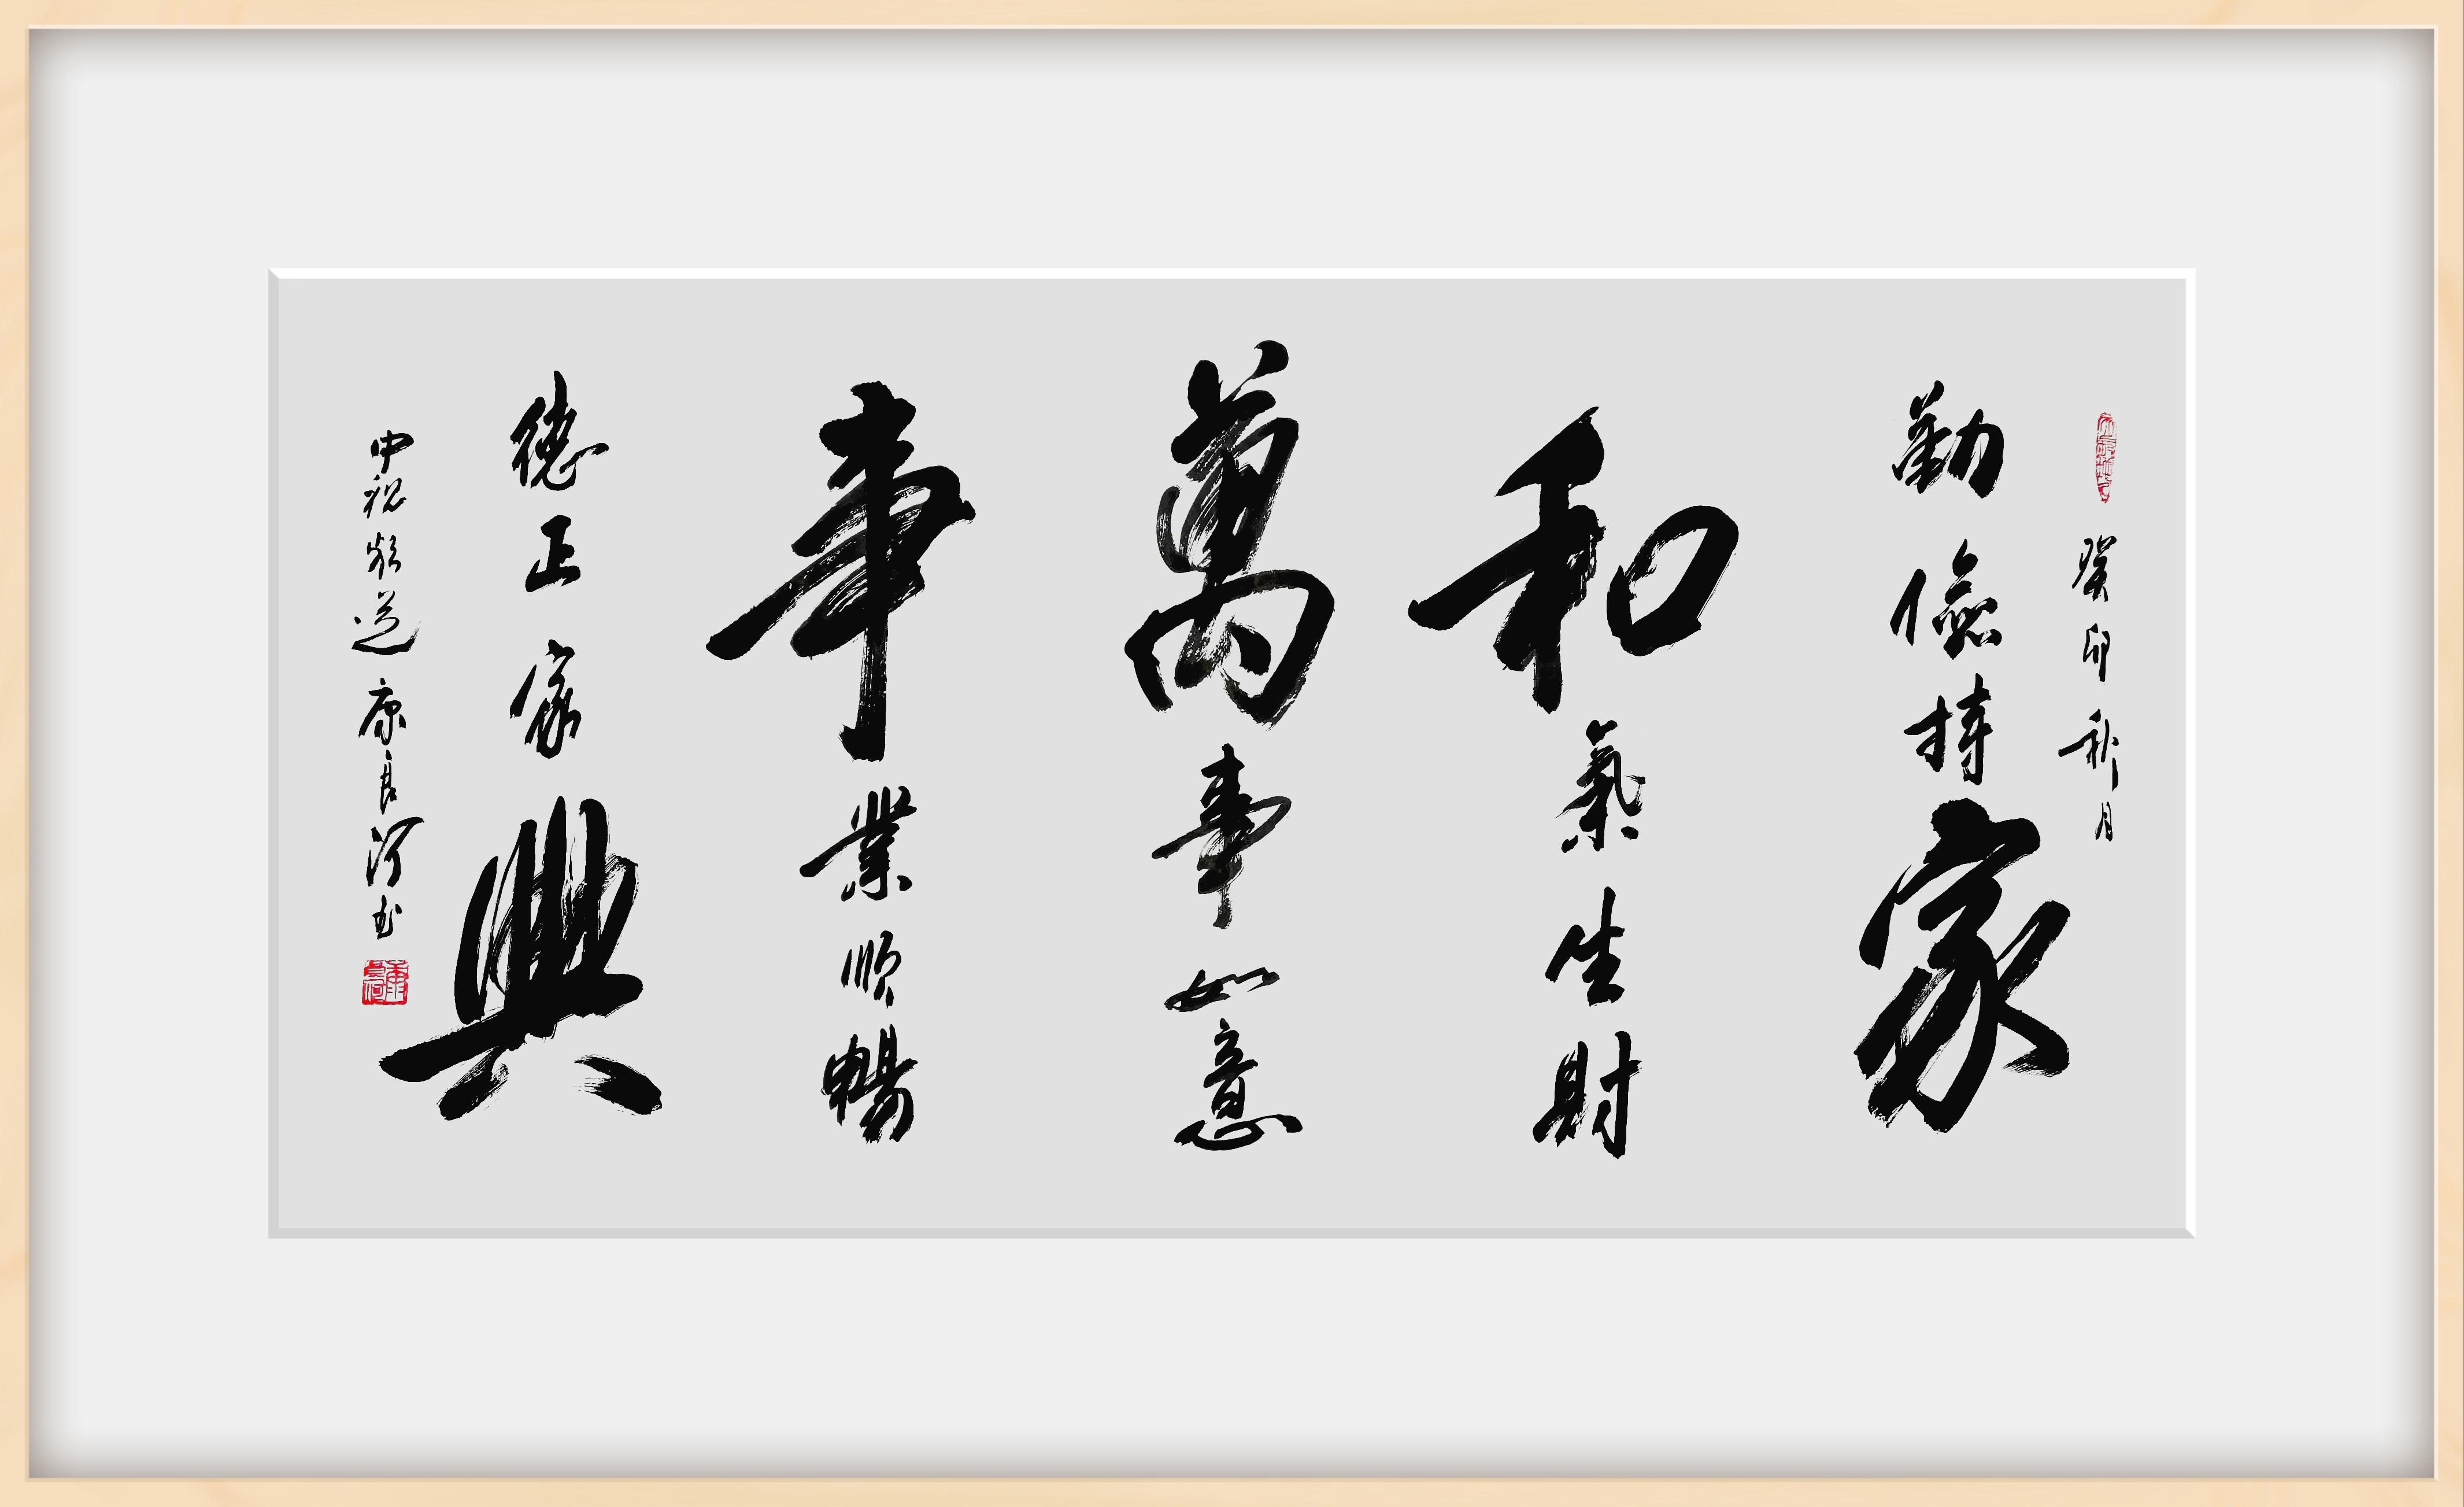 癸卯秋月
勤儉持家
和氣生財
萬事如意
事業順暢
德正家興
康良河书